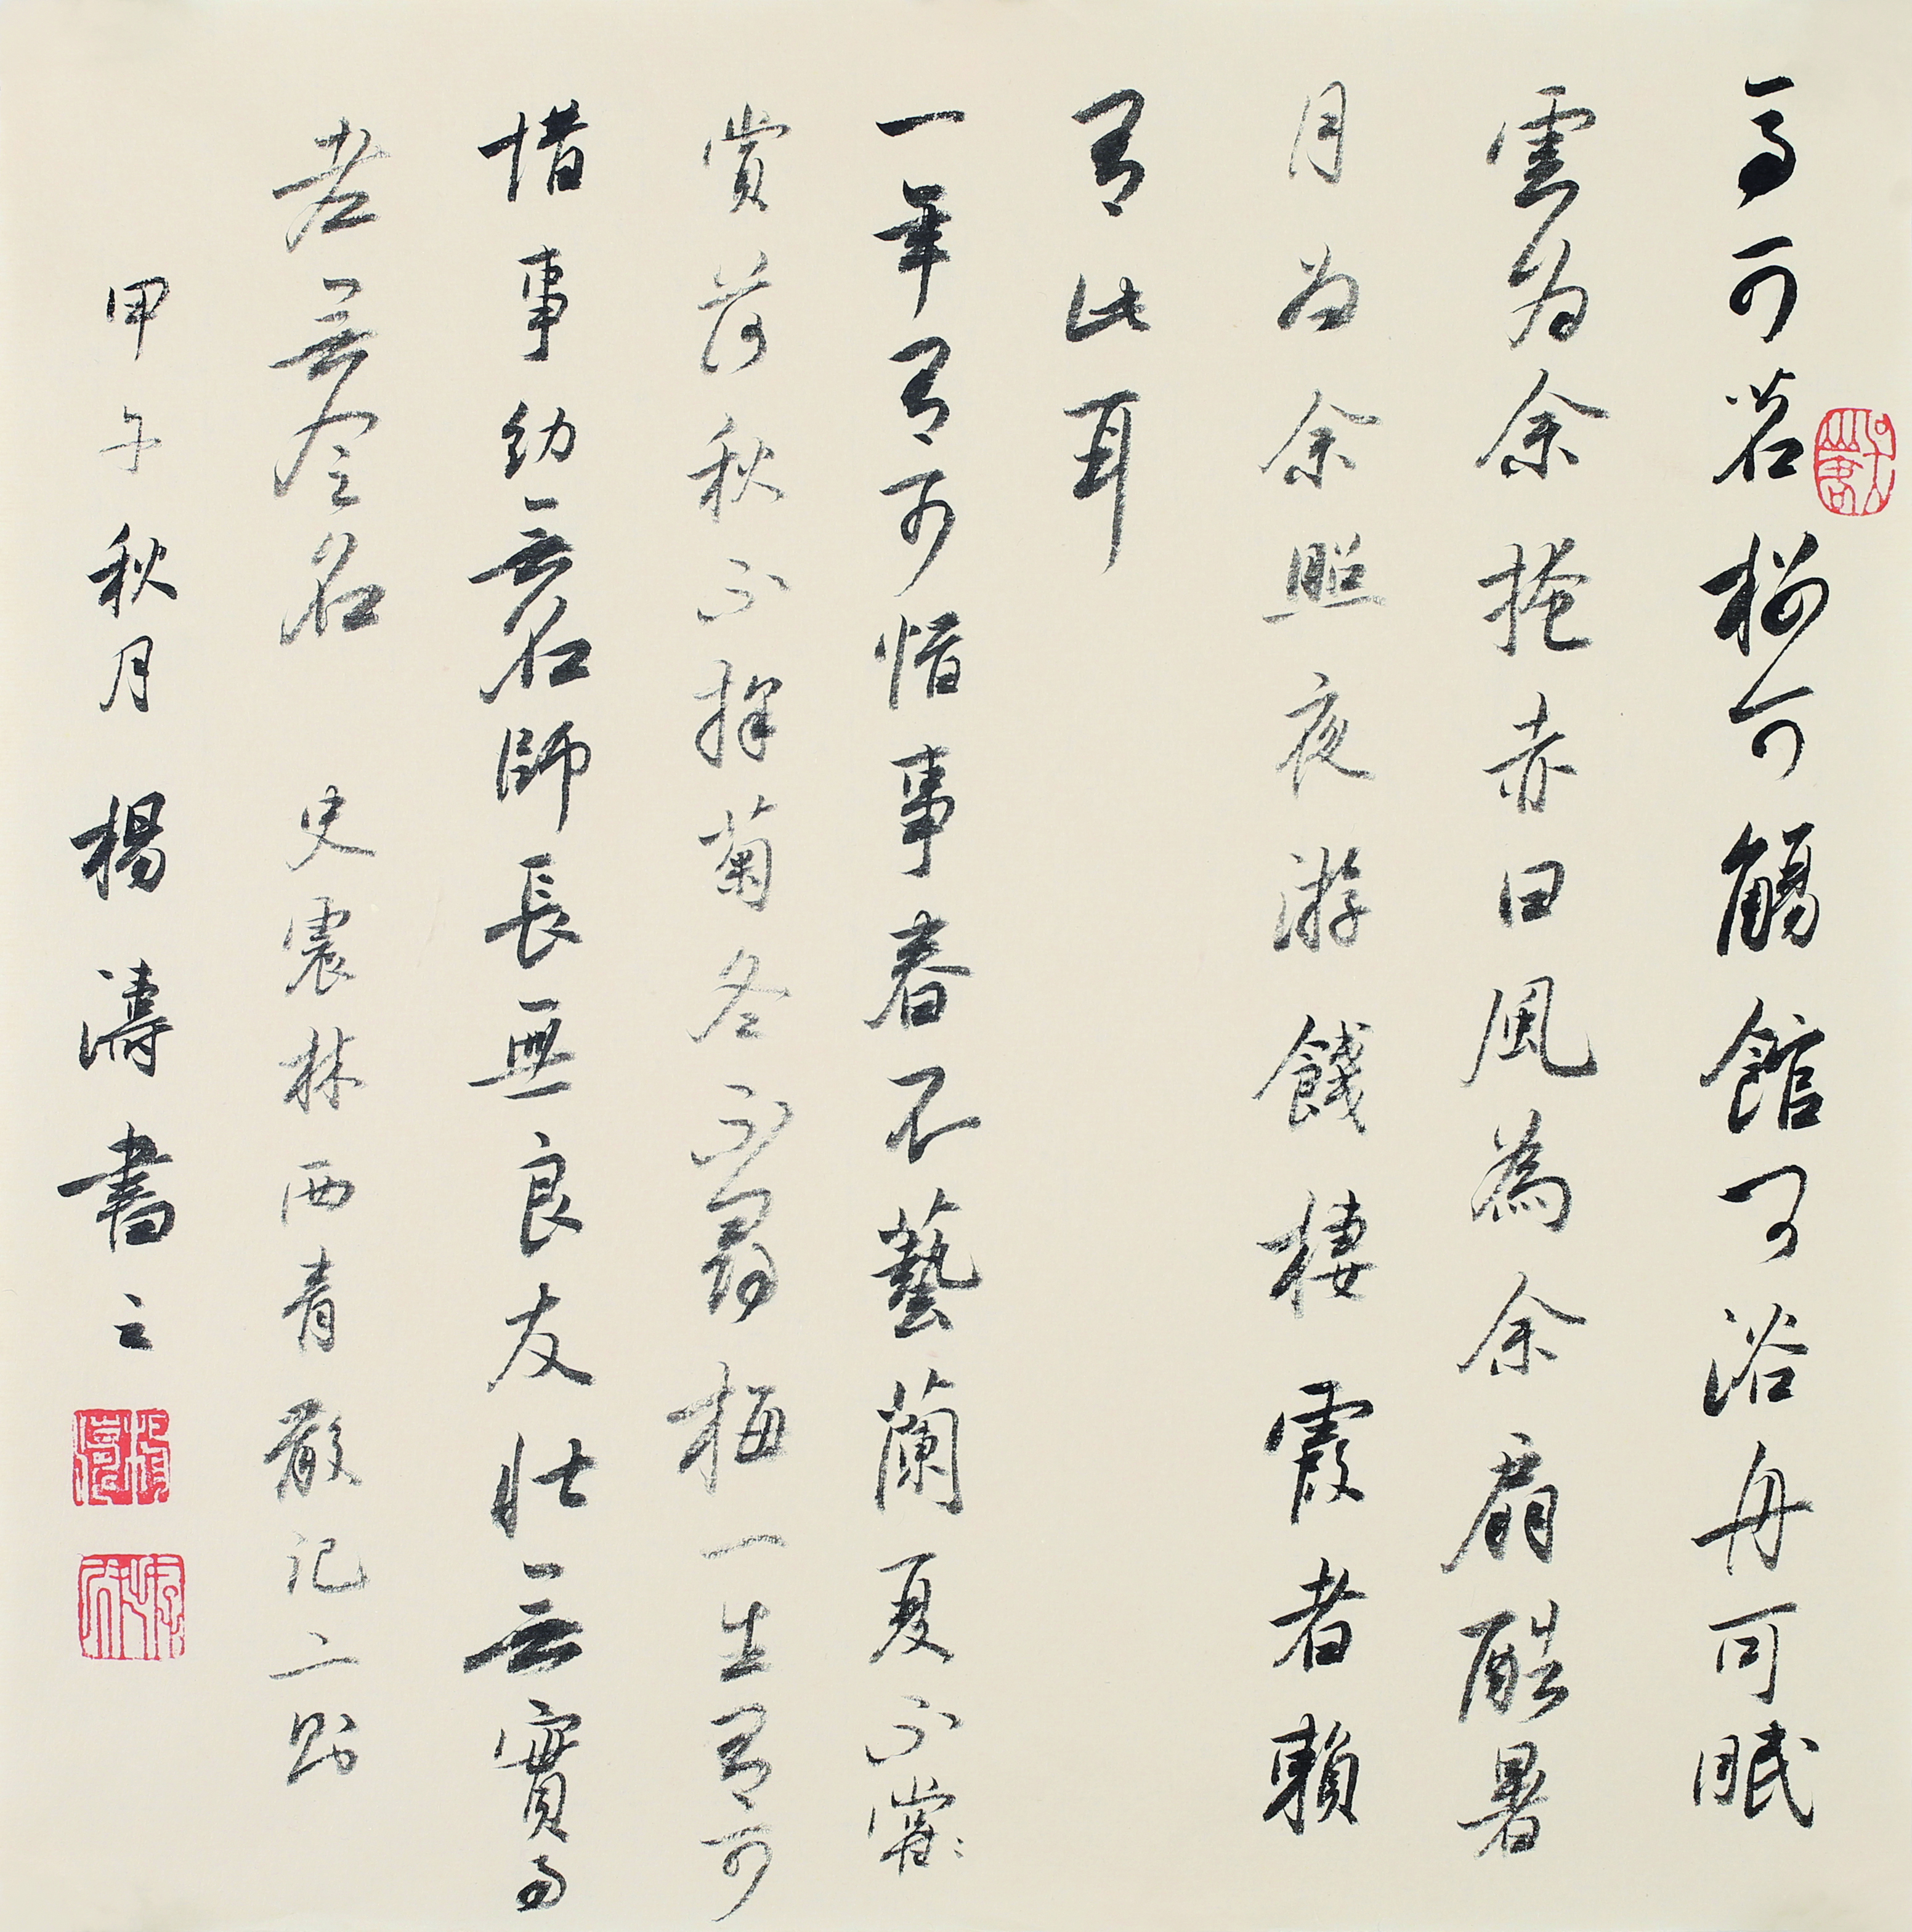 亭可茗橋可觴館可浴舟可眠
雲为余掩赤日風為余扇酷暑
月为余照夜游餞棲霞者賴
有此耳
一年有可惜事春不藝蘭夏不當
賞荷秋不採菊冬不尋梅一生有可
惜事幼無名師長無良友壯無實事
老無令名 史震林西青散記二則
甲午秋月楊濤書之